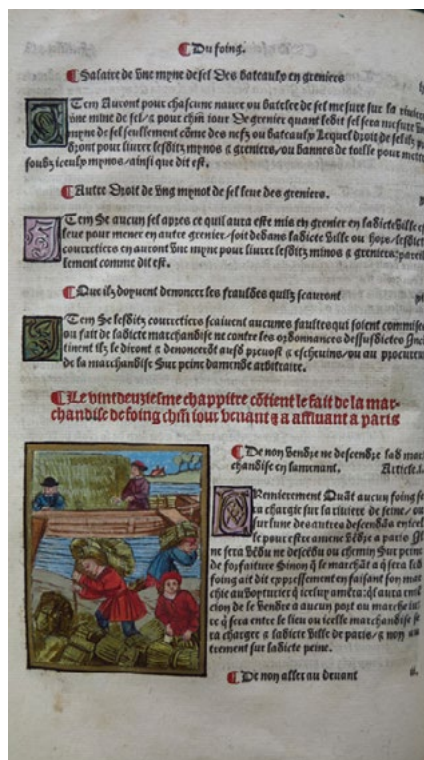 Du foing.
Salaire de vne myne de sel des bateaulx en greniers
Item Auront pour chascune nauee ou batelee de sel mesure sur la riuiere
vne mine de sel/ & pour chm iour de grenier quant ledit sel sera mesure vne
myne de sel seullement cõme des nefz ou bateaulx Lequel droit de sel ilz p
dront pour liurer lesditz mynos & greniers/ou bannes de toille pour mettre
soubz iceulx mynos/ainsi que dit est.
Autre droit de vng mynot de sel leue des greniers.
Item Se aucun sel apres ce quil aura este mis en grenier en ladicte ville est
leue pour mener en autre grenier/soit dedans ladicte ville ou hors/lesditz
courretiers en auront vne myne pour liurer lesditz minos & greniers/pareil
lement comme dit est.
Que ilz doyuent denoncer les fraulbes quilz scauront
Item Se lesditz courretiers scaiuent aucunes faultes qui soient commises
ou fait de ladicte marchandise ne contre les ordonnances dessusdictes
tinent ilz le diront & denoncerõt ausd preuost & escheuins/ou au procureur
de la marchandise Sur peine damende arbitraire.
Le vintdeuziesme chappitre cõtient le fait de la mar-
chandise de foing chm iour venant & a affluant a paris
De non vendre ne descendre lad mar
chandise en lamenant. Article.i.
Premierement Quãt aucun foing se
ra chargie sur la riuiere de seine/ou
sur lune des autres descendãs en icel
le pour estre amene vẽdre a paris Il
ne sera vẽdu ne descẽdu ou chemin Sur peine
de forfaiture Sinon q̃ le marchãt a q̃ sera led
foing ait dit expressement en faisant son mar
chie au voyturier q̃ icelluy amẽra: q̃l aura ento
cion de le vendre a aucun port ou marche
re q̃ sera entre le lieu ou icelle marchãdise se
ra chargee & ladicte ville de paris/& non au
trement sur ladicte peine.
De non aller au deuant ii.